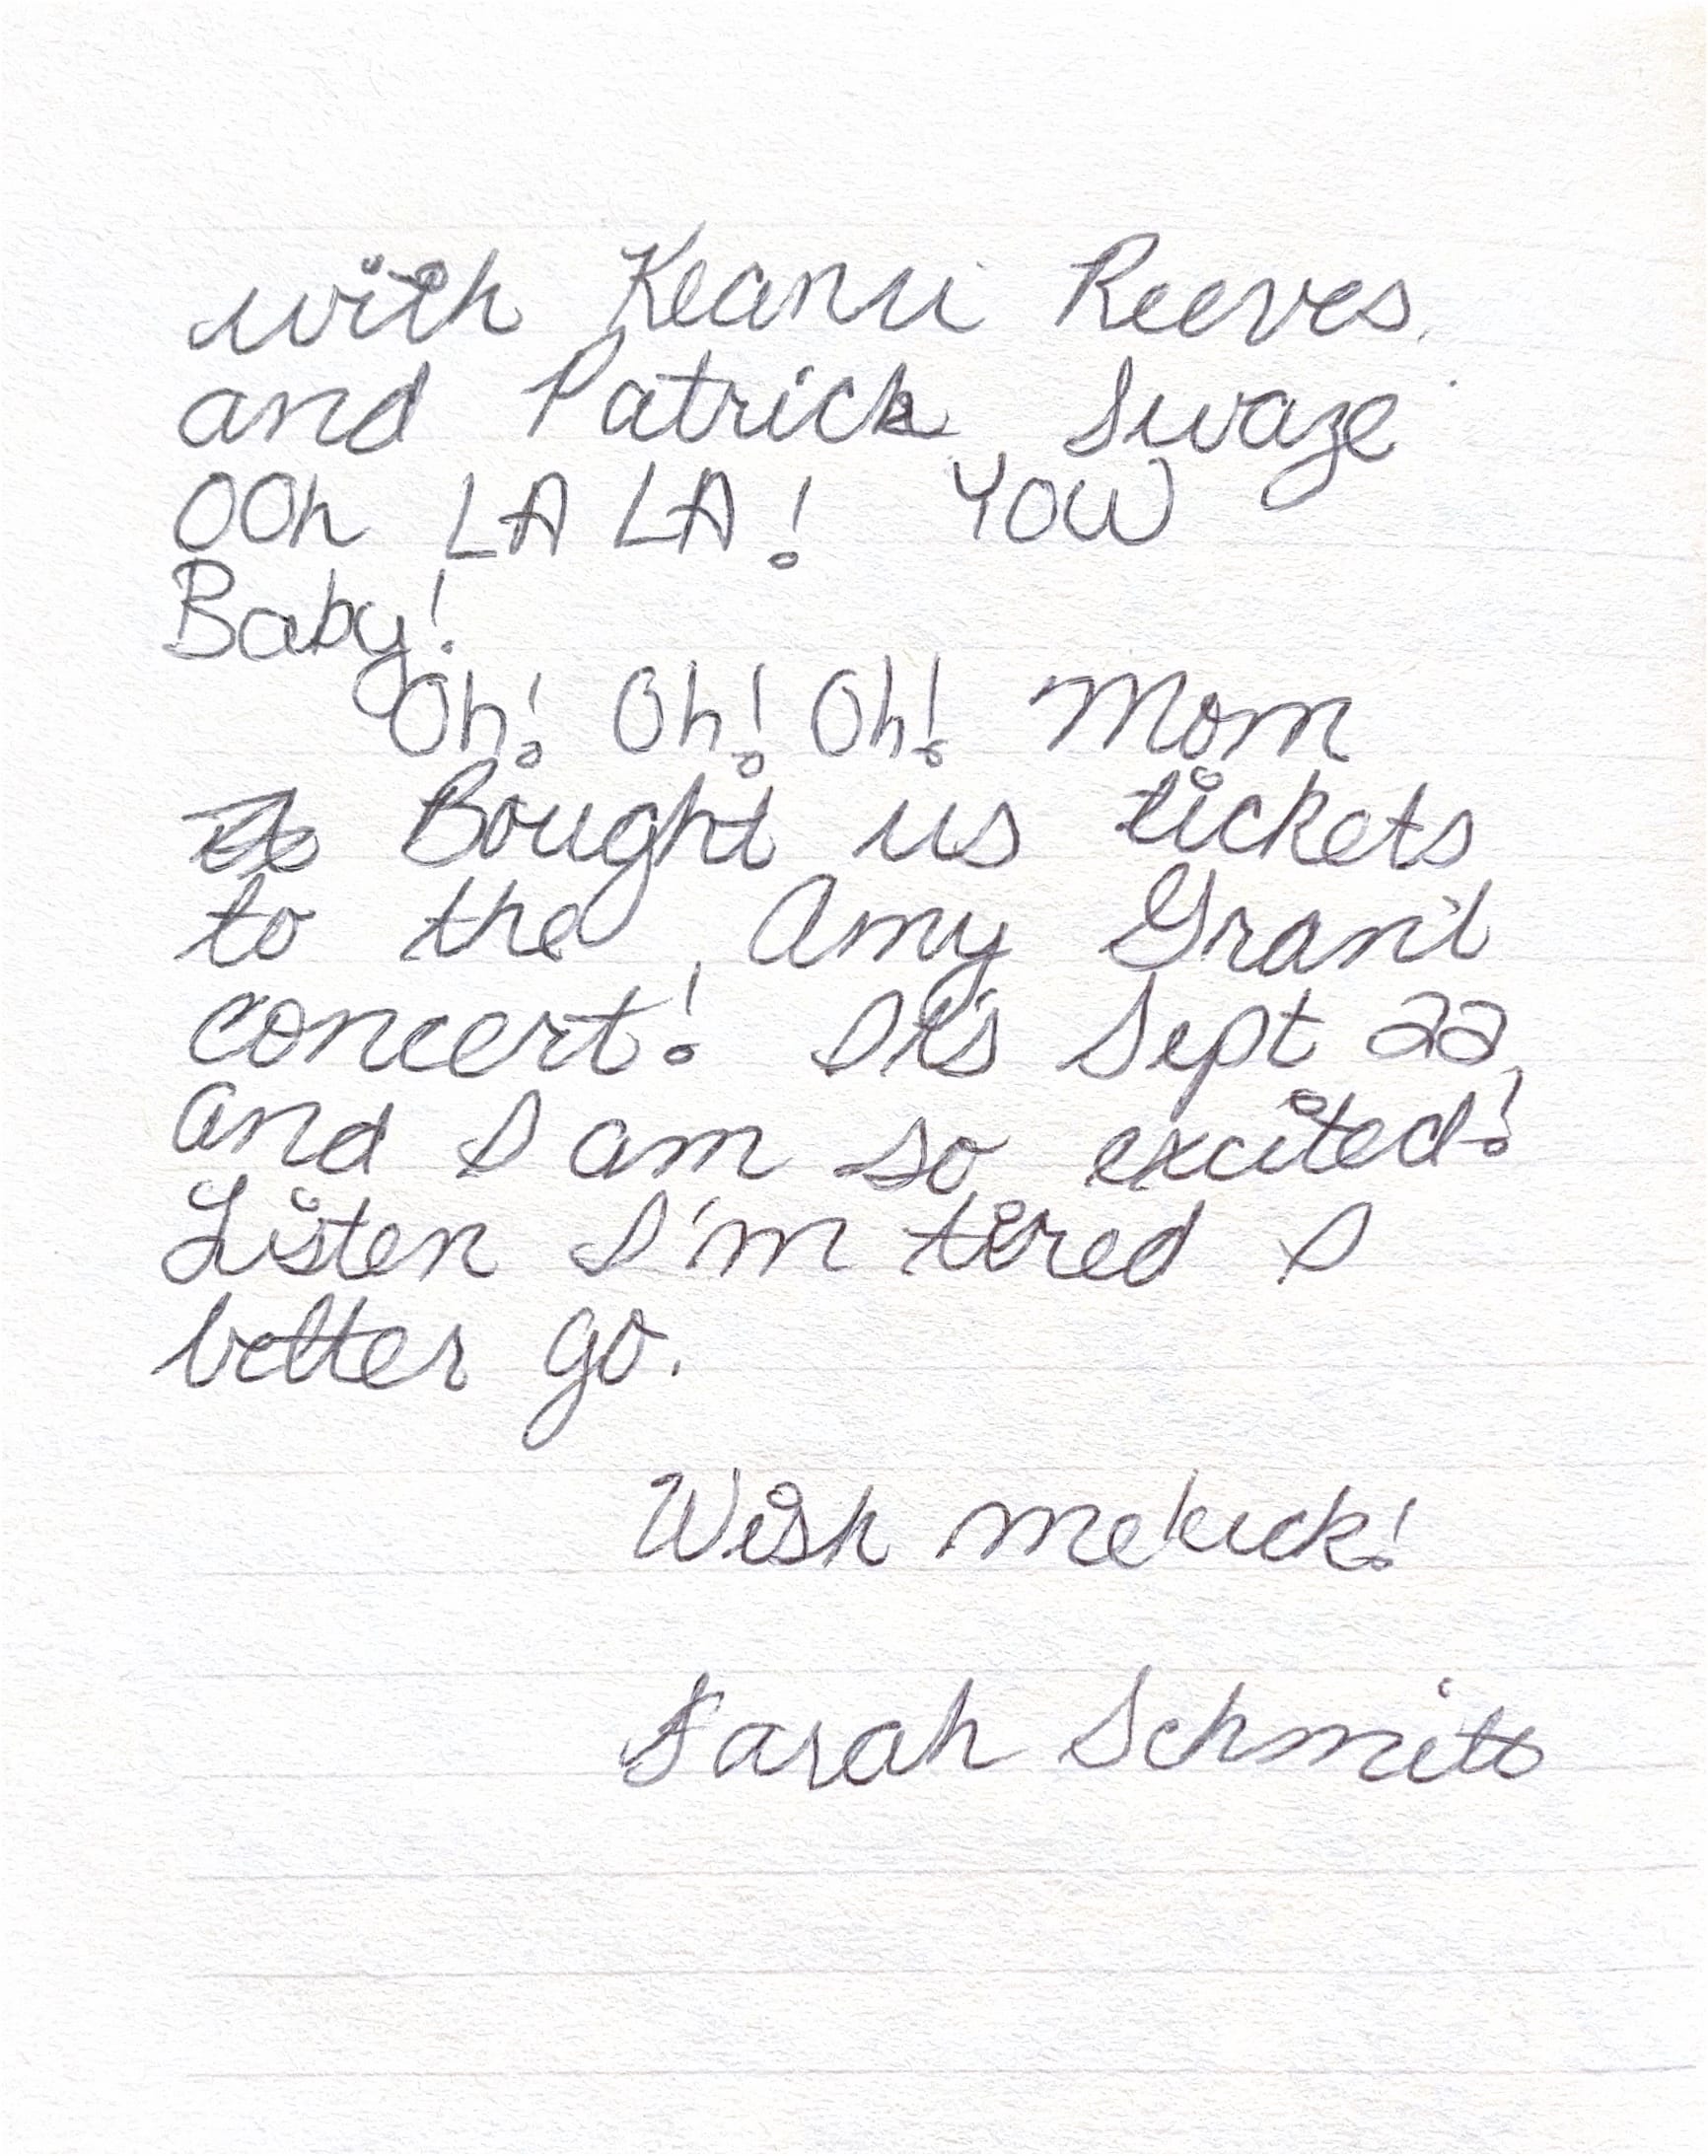 with Keanu Reeves.
and Patrick Swaze
OOh LA LA! YOW
Baby!
Oh! Oh! Oh! Mom
Bought us tickets
to the Amy Grant
concert! It's Sept 22
and I am so excited!
Listen I'm tired I
better go.
Wish me luck!
Sarah Schmitt